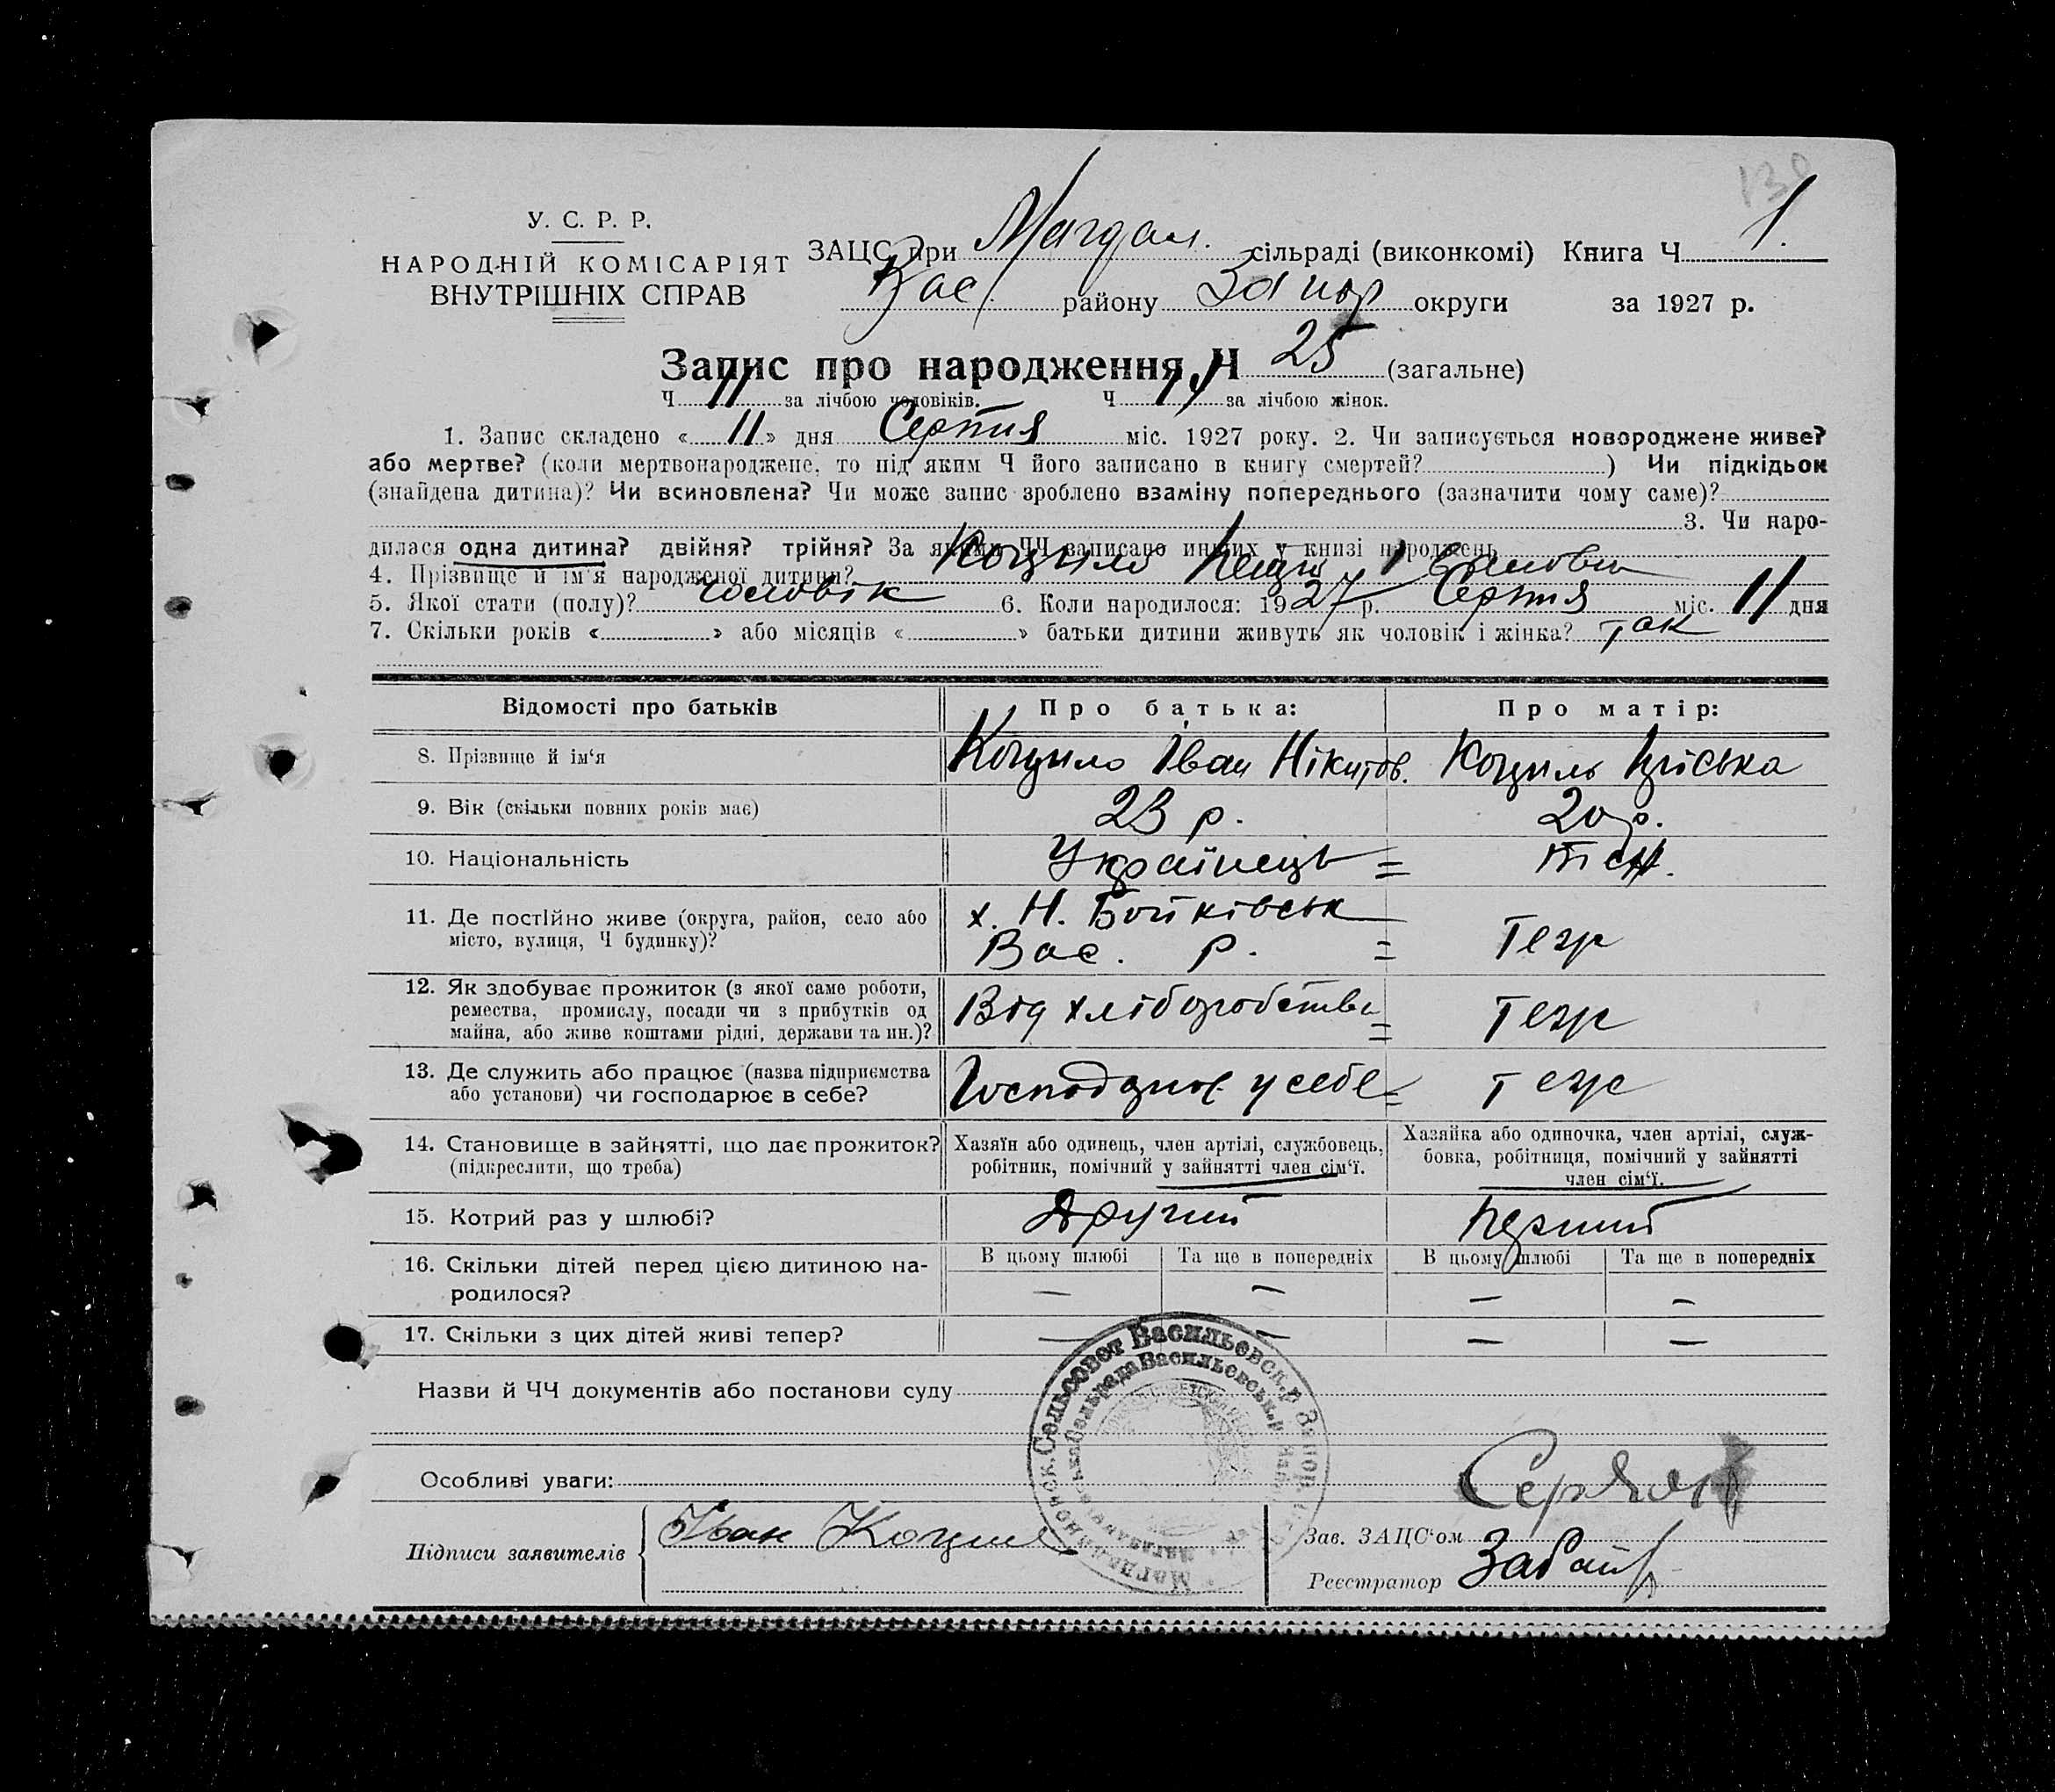 У. С. Р. Р.
НАРОДНІЙ КОМІСАРІЯТ
ВНУТРІШНІХ СПРАВ
130
ЗАЦС при Магдал. сільраді (виконкомі) Книга Ч 1.
Вас. району Запор округи за 1927 р.
Запис про народження Ч 25 (загальне)
Ч 11 за лічбою чоловіків. Ч за лічбою жінок.
1. Запис складено « 11 » дня Серпня міс. 1927 року. 2. Чи записується новороджене живе?
або мертве? (коли мертвонароджене, то під яким Ч його записано в книгу смертей? ) Чи підкідьок
(знайдена дитина)? Чи всиновлена? Чи може запис зроблено взаміну попереднього (зазначити чому саме)?
3. Чи наро-
дилася одна дитина? двійня? трійня? За якими ЧЧ записано инших у книзі народжень
4. Прізвище й ім'я народженої дитини? Коцило
5. Якої стати (полу)? чоловік 6. Коли народилося: 1927 р. Серпня міс. 11 дня
7. Скільки років « » або місяців « » батьки дитини живуть як чоловік і жінка? так
Відомості про батьків Про батька: Про матір:
8. Прізвище й ім'я Коцило Іван Нікитов. Коциль
9. Вік (скільки повних років має) 23 р. 20 р.
10. Національність Українець =
11. Де постійно живе (округа, район, село або х. Н. Бойківськ
місто, вулиця, Ч будинку)? Вас. р. =
12. Як здобуває прожиток (з якої саме роботи,
ремества, промислу, посади чи з прибутків од Від хліборобства =
майна, або живе коштами рідні, держави та ин.)?
13. Де служить або працює (назва підприємства
або установи) чи господарює в себе? у себе =
14. Становище в зайнятті, що дає прожиток? Хазяїн або одинець, член артілі, службовець, Хазяйка або одиночка, член артілі, служ-
(підкреслити, що треба) робітник, помічний у зайнятті член сім'ї. бовка, робітниця, помічний у зайнятті
член сім'ї.
15. Котрий раз у шлюбі? Другий перший
16. Скільки дітей перед цією дитиною на- В цьому шлюбі Та ще в попередніх В цьому шлюбі Та ще в попередніх
родилося? — — — —
17. Скільки з цих дітей живі тепер? — — — —
Назви й ЧЧ документів або постанови суду
Особливі уваги:
Підписи заявителів Іван Коцило
Зав. ЗАЦС'ом
Реєстратор
Сельсовет Васильевск. р
Сельрада Васильевськ. р